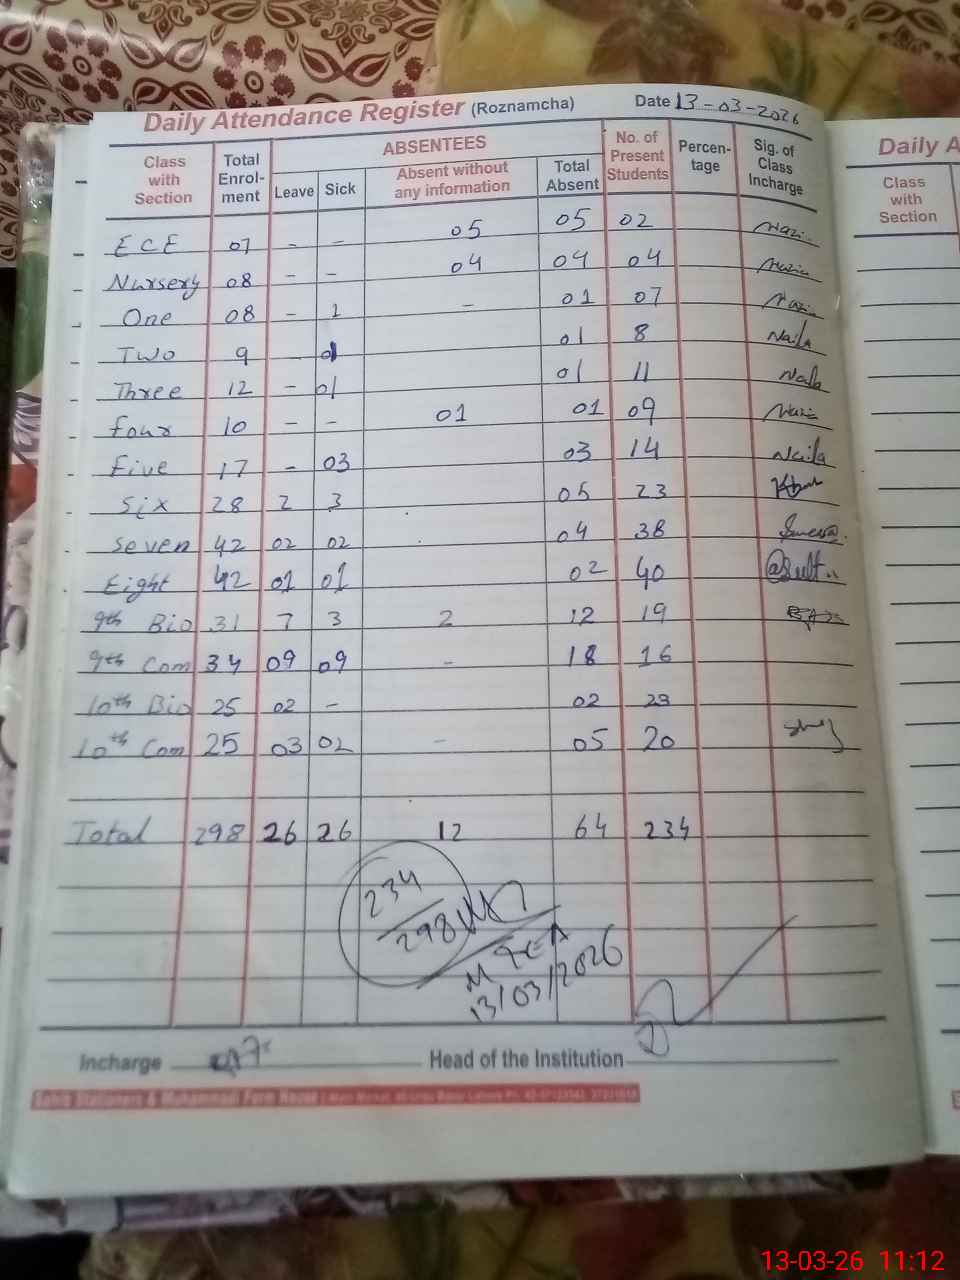 Daily Attendance Register (Roznamcha) Date 13-03-2026
Class with Section Total Enrol-ment ABSENTEES Leave Sick Absent without any information Total Absent No. of Present Students Percen-tage Sig. of Class Incharge
ECE 07 - - 05 05 02 Nazi
Nursery 08 - - 04 04 04 Nazia
One 08 - 1 - 01 07 Nazia
Two 9 - 01 01 8 Naila
Three 12 - 01 01 11 Naila
four 10 - - 01 01 09 Nazia
five 17 - 03 03 14 Naila
Six 28 2 3 05 23
Seven 42 02 02 04 38
Eight 42 01 01 02 40
9th Bio 31 7 3 2 12 19
9th Com 34 09 09 - 18 16
10th Bio 25 02 - 02 23
10th Com 25 03 02 - 05 20
Total 298 26 26 12 64 234
234
298
13/03/2026
Incharge Head of the Institution
Daily A
Class with Section
13-03-26 11:12